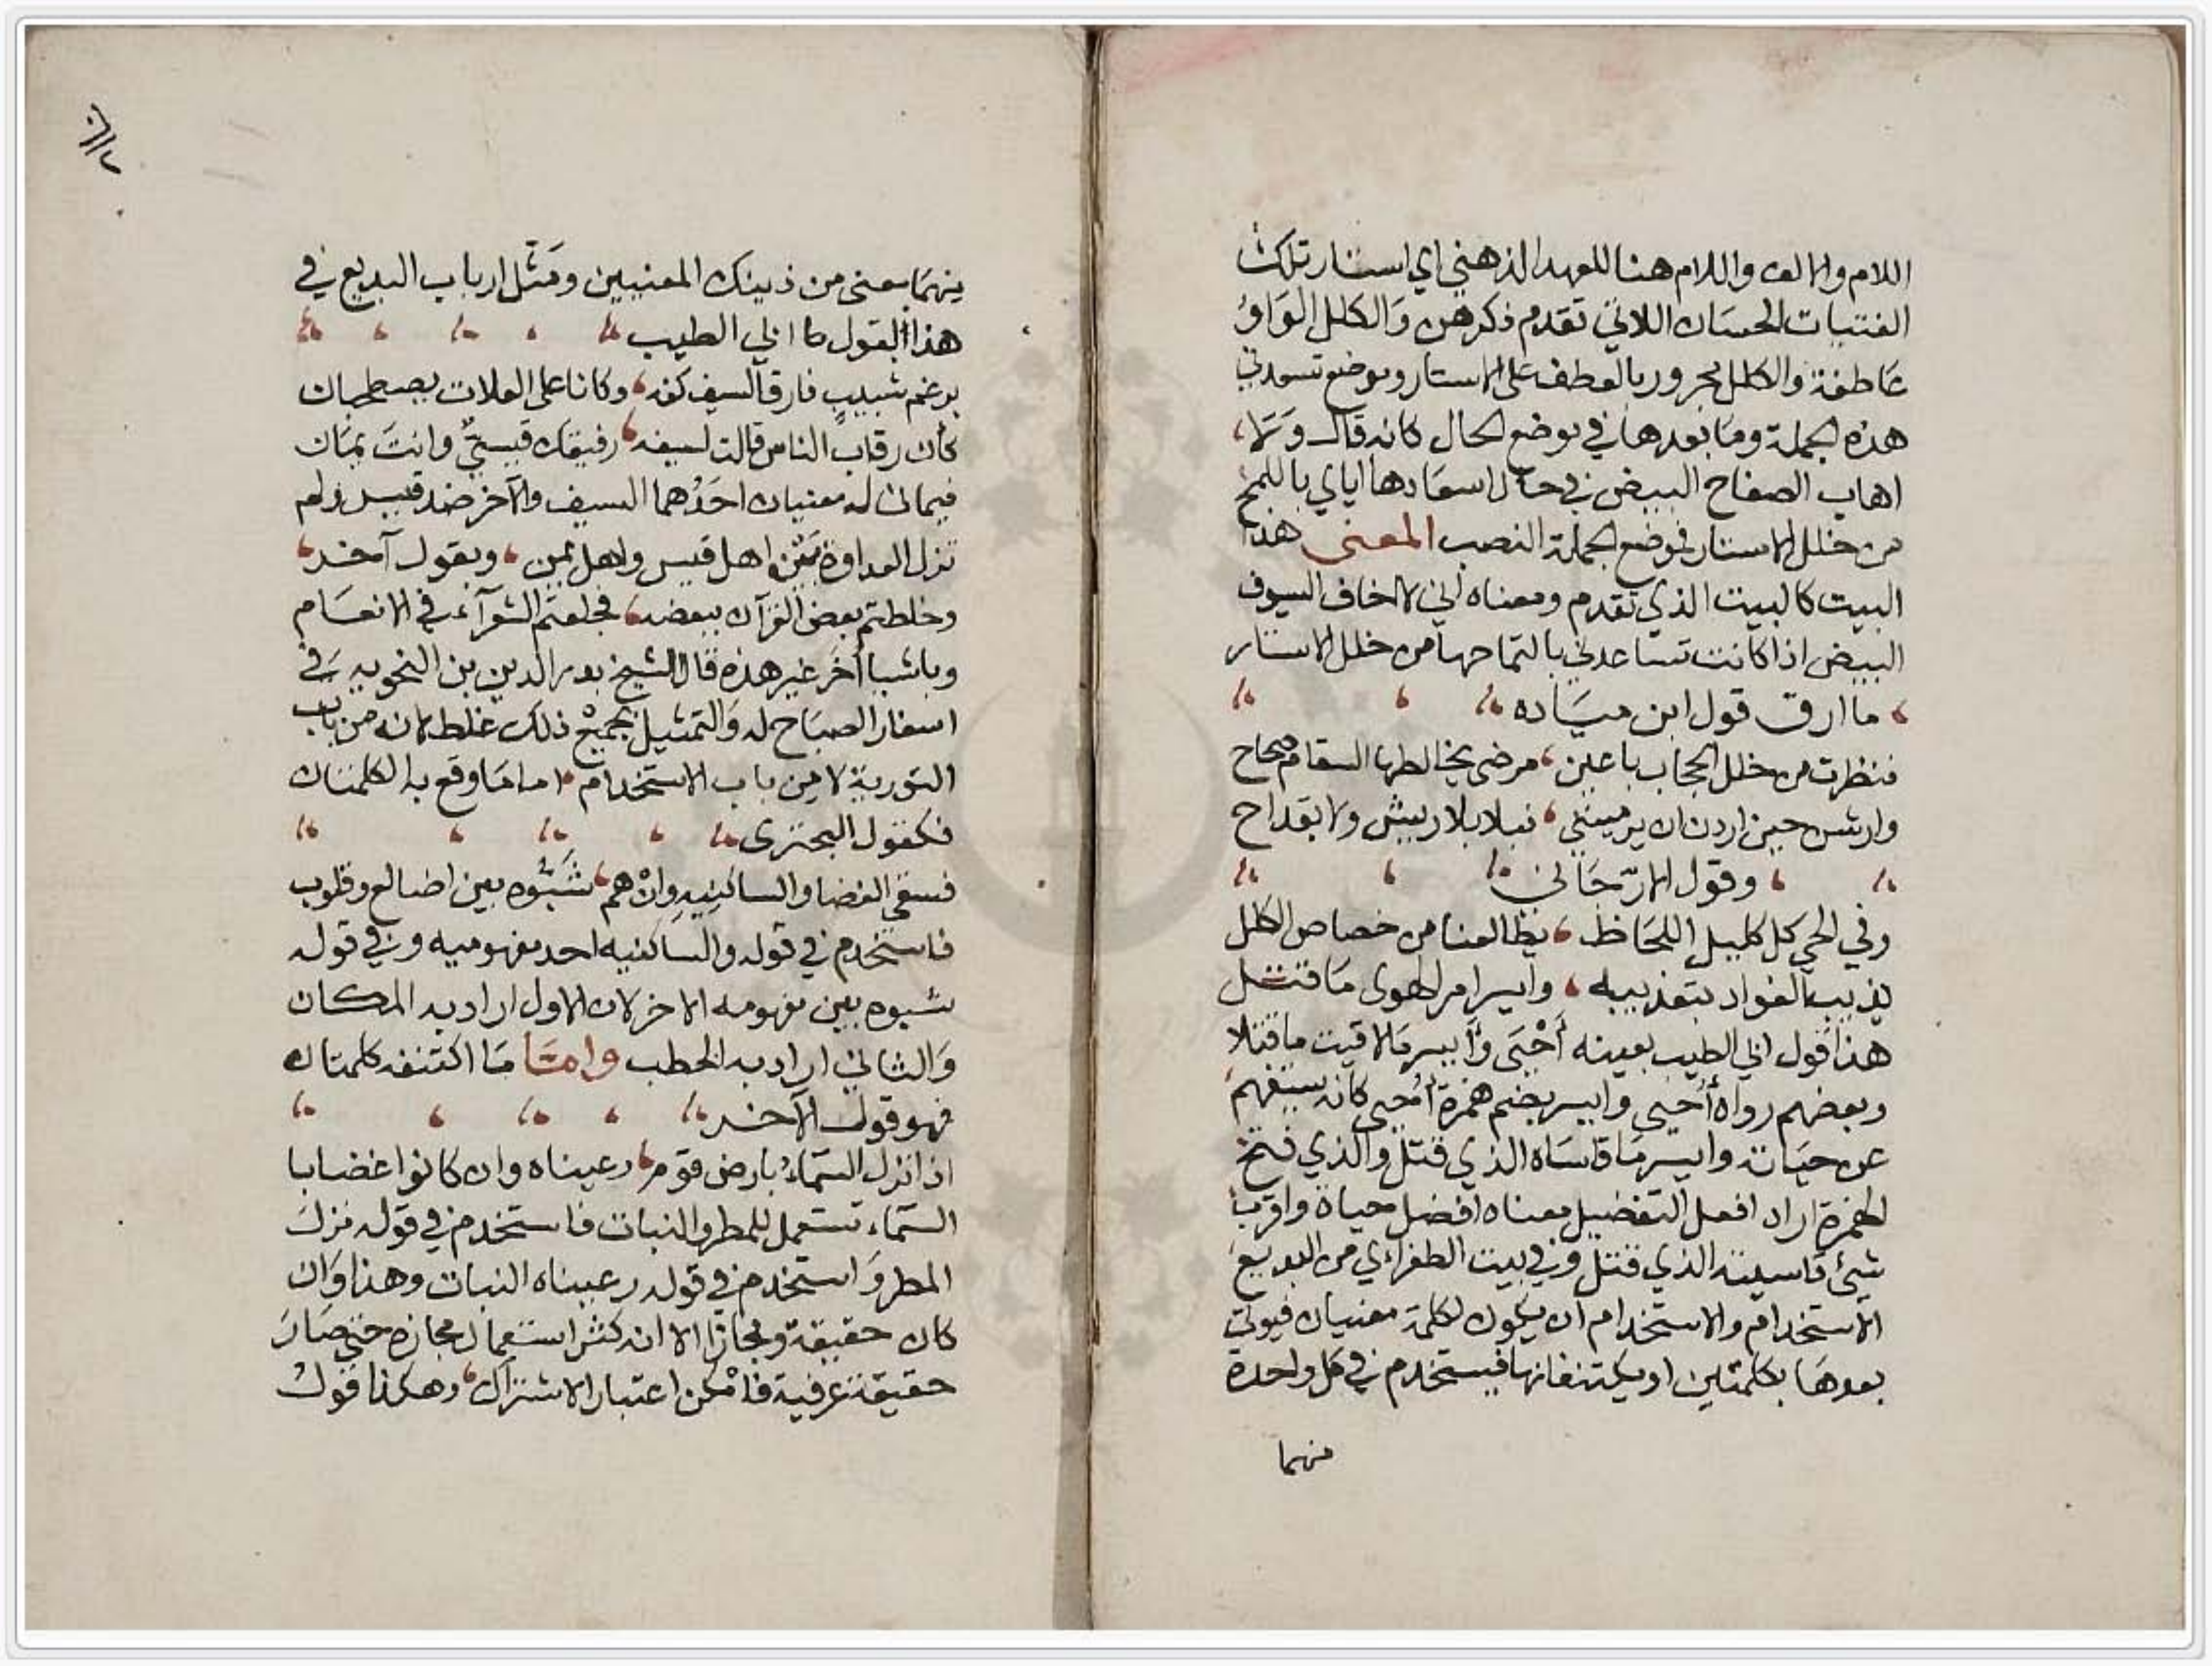 اللام والالف واللام هنا للعهد الذهني اي استار تلك
الفتيات الحسان اللاتي تقدم ذكرهن والكلل الواو
عاطفة والكلل مجرور بالعطف على الاستار وموضع تسعدني
هذه الجملة وما بعدها في موضع الحال كانه قال ولا
اهاب الصفاح البيض في حال اسعادها اياي باللمح
من خلل الاستار فموضع الجملة النصب المعنى هذا
البيت كالبيت الذي تقدم ومعناه اني لا اخاف السيوف
البيض اذا كانت تساعدني بالتماحها من خلل الاستار
ما ارق قول ابن مياده
فنظرت من خلل الحجاب باعين مرضى يخالطها السقام صحاح
وارتشن حين اردن ان يرمينني نبلا بلا ريش ولا بقداح
وقول الارّجاني
وفي الحي كل كليل اللحاظ يطالعنا من خصاص الكلل
يذيب الفواد بتعذيبه وايسر امر الهوى ما قتل
هذا قول ابي الطيب بعينه أَحْيَى وأيسر ما لاقيت ما قتلا
وبعضهم رواه أُحيى وايسر بضم همزة أُحيى كانه يستفهم
عن حياته وايسر ما قاساه الذي قتل والذي فتح
الهمزة اراد افعل التفضيل معناه افضل حياة واقرب
شيئ قاسيته الذي قتل وفي بيت الطغراءي من البديع
الاستخدام والاستخدام ان يكون لكلمة معنيان فيوتى
بعدها بكلمتين او يكتنفانها فيستخدم في كل واحدة
منهما
منهما بمعنى من ذينك المعنيين ومَثّل ارباب البديع في
هذا القول ما ابي الطيب
برغم شبيبٍ فارق السيف كفه وكانا على العلات يصطحبان
كأن رقاب الناس قالت لسيفه رفيقك قيسيٌّ وانتَ يمان
فيمان له معنيان احدُهما السيف والآخر ضد قيس ولم
تزل العداوة بَيْن اهل قيس واهل يمن وبقول آخر
وخلطتم بعض القرآن ببعضه فجعلتم الشعرآء في الانعام
وباشيا أخَر غير هذه قال الشيخ بدر الدين بن النحويه في
اسفار الصباح له والتمثيل بجميع ذلك غلط لانه من باب
التورية لا من باب الاستخدام اما ما وقع به الكلمتان
فكقول البحتري
فسقى الغضا والساكنيهِ وانْ هم شَبُّوه بين اضالع وقلوب
فاستخدم في قوله والساكنيه احد مفهوميه وفي قوله
شبوه بين مفهومه الاخر لان الاول اراد به المكان
والثاني اراد به الحطب وامّا ما اكتنفه كلمتان
فهو قول الآخر
اذا نزل السّماءُ بارض قوم رعيناه وان كانوا غضابا
السّماء تستعمل للمطر والنبات فاستخدم في قوله نزل
المطر واستخدم في قوله رعيناه النبات وهذا وان
كان حقيقة ومجازا الا انه كثر استعمال مجازه حتى صار
حقيقة عرفية فامْكن اعتبار الاشتراك وهكذا قول